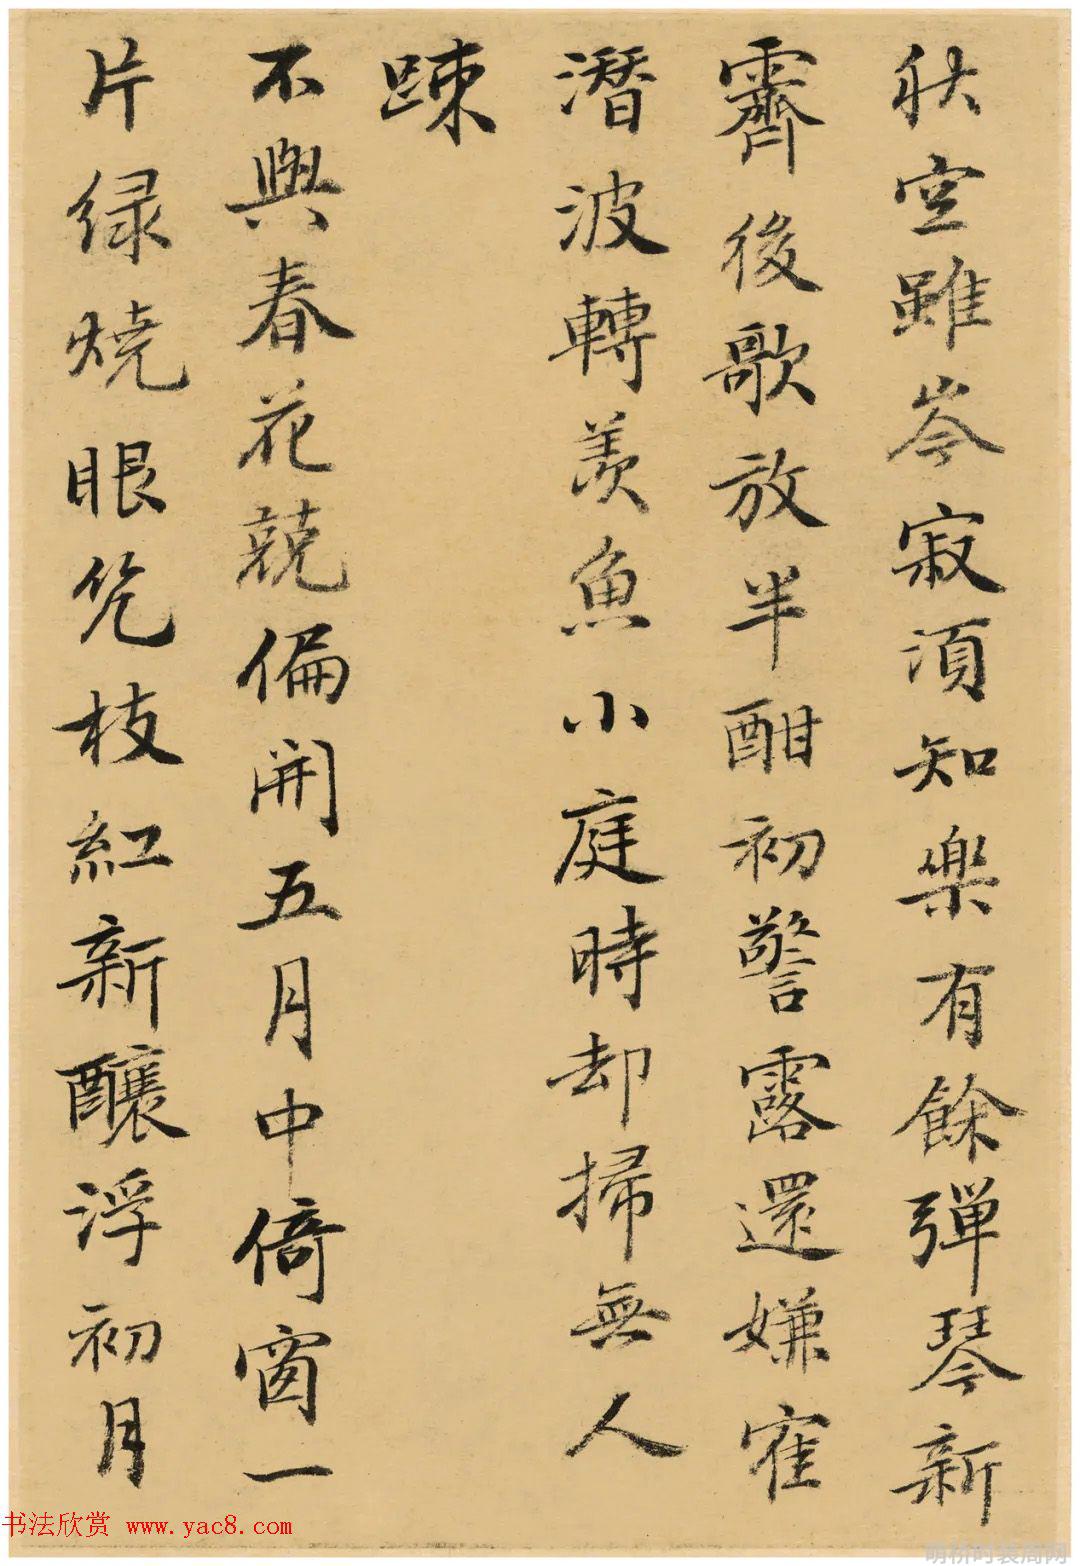 秋空雖岑寂須知樂有餘彈琴新
霽後歌放半酣初警露還嫌寉
潛波轉羨魚小庭時却掃無人
踈
不與春花競偏開五月中倚窗一
片緑燒眼笎枝紅新釀浮初月
书法欣赏 www.yac8.com